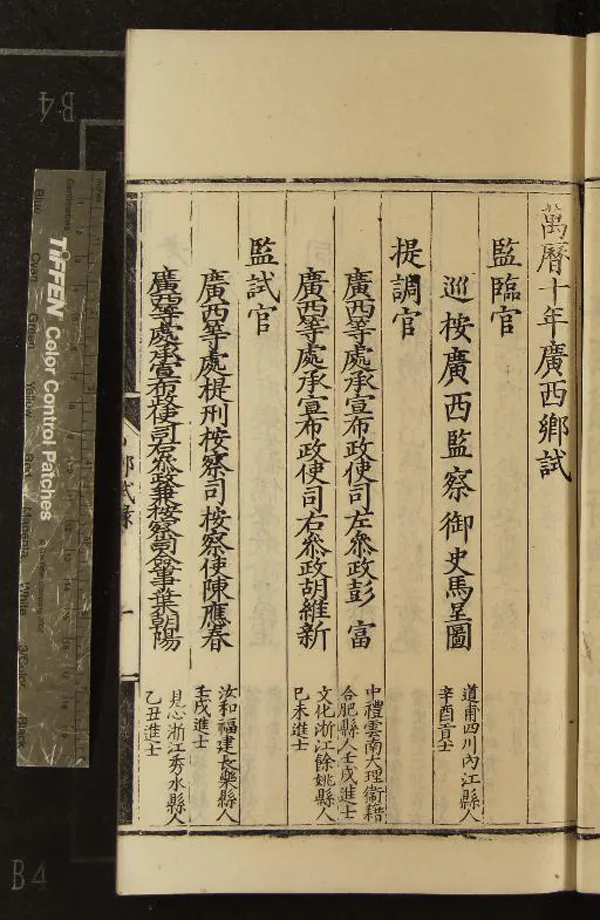 萬曆十年廣西鄉試
監臨官
巡按廣西監察御史馬呈圖
道甫四川內江縣人
辛酉貢士
提調官
廣西等處承宣布政使司左叅政彭富
中禮雲南大理衞籍
合肥縣人壬戌進士
廣西等處承宣布政使司右叅政胡維新
文化浙江餘姚縣人
巳未進士
監試官
廣西等處提刑按察司按察使陳應春
汝和福建長樂縣人
壬戌進士
廣西等處承宣布政使司右叅政兼按察司僉事葉朝陽
見心浙江秀水縣人
乙丑進士
鄉試錄
一
B4
B4
inches
Centimetres
TIFFEN Color Control Patches
Blue
Cyan
Green
Yellow
Red
Magenta
White
3/Color
Black